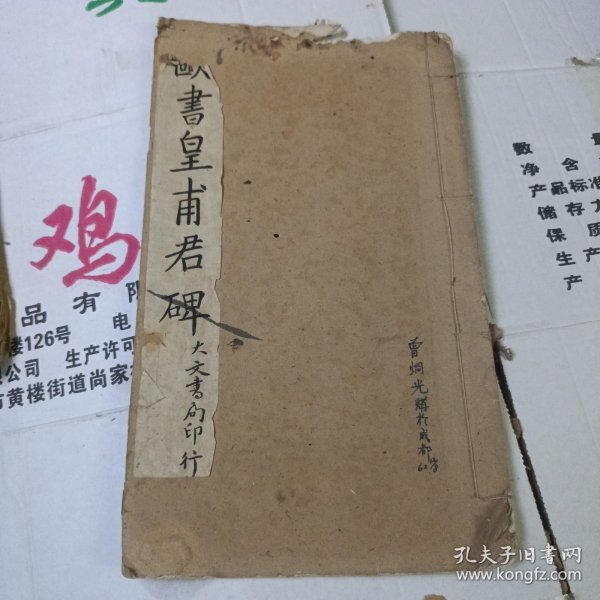 歐書皇甫君碑
大文書局印行
曾炯光購於成都
62
鸡
品有限
楼126号 电
公司 生产许可
黄楼街道尚家
数 量
净含
产品标准
储存方
保质
生产
产
孔夫子旧书网
www.kongfz.com